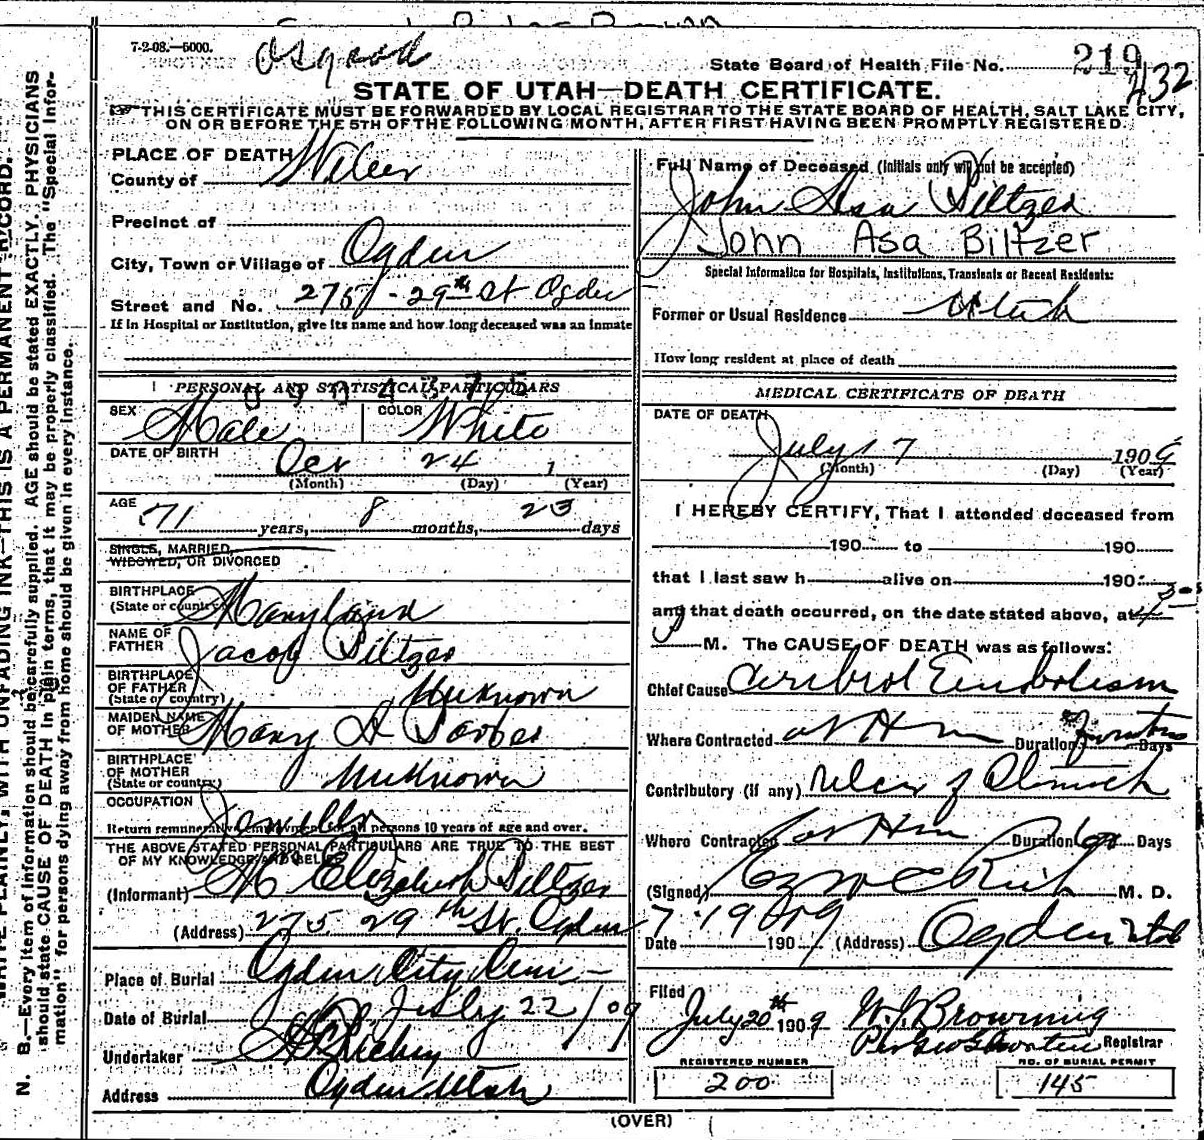 7-2-08.—5000.
Osgood
State Board of Health File No. 219
432
STATE OF UTAH—DEATH CERTIFICATE.
☞ THIS CERTIFICATE MUST BE FORWARDED BY LOCAL REGISTRAR TO THE STATE BOARD OF HEALTH, SALT LAKE CITY,
ON OR BEFORE THE 5TH OF THE FOLLOWING MONTH, AFTER FIRST HAVING BEEN PROMPTLY REGISTERED.
PLACE OF DEATH
County of Weber
Precinct of
City, Town or Village of Ogden
Street and No. 275 - 29th St Ogden
If in Hospital or Institution, give its name and how long deceased was an inmate
PERSONAL AND STATISTICAL PARTICULARS
SEX Male COLOR White
DATE OF BIRTH Oct 24 1
(Month) (Day) (Year)
AGE 71 years, 8 months, 23 days
SINGLE, MARRIED,
WIDOWED, OR DIVORCED
BIRTHPLACE
(State or country) Maryland
NAME OF
FATHER Jacob Biltzer
BIRTHPLACE
OF FATHER
(State or country) Unknown
MAIDEN NAME
OF MOTHER Mary A
BIRTHPLACE
OF MOTHER
(State or country) Unknown
OCCUPATION Jeweller
Return remunerative employment for all persons 10 years of age and over.
THE ABOVE STATED PERSONAL PARTICULARS ARE TRUE TO THE BEST
OF MY KNOWLEDGE AND BELIEF
(Informant) M Elizabeth Biltzer
(Address) 275 29th St. Ogden
Place of Burial Ogden City Cem—
Date of Burial July 22 / 09
Undertaker Richey
Address Ogden Utah
Full Name of Deceased (Initials only will not be accepted)
John Asa Biltzer
John Asa Biltzer
Special Information for Hospitals, Institutions, Transients or Recent Residents:
Former or Usual Residence Utah
How long resident at place of death
MEDICAL CERTIFICATE OF DEATH
DATE OF DEATH
July 17 1909
(Month) (Day) (Year)
I HEREBY CERTIFY, That I attended deceased from
190 to 190
that I last saw h alive on 190
and that death occurred, on the date stated above, at
M. The CAUSE OF DEATH was as follows:
Chief Cause Cerebral Embolism
Where Contracted at Home Duration Days
Contributory (if any) Ulcer of Stomach
Where Contracted at Home Duration Days
(Signed) Rich M. D.
Date 7-19 1909 (Address) Ogden Utah
Filed
July 20th 1909 W. J. Browning
Registrar
REGISTERED NUMBER
200
NO. OF BURIAL PERMIT
145
(OVER)
WRITE PLAINLY, WITH UNFADING INK—THIS IS A PERMANENT RECORD.
N. B.—Every item of information should be carefully supplied. AGE should be stated EXACTLY. PHYSICIANS
should state CAUSE OF DEATH in plain terms, that it may be properly classified. The "Special Infor-
mation" for persons dying away from home should be given in every instance.